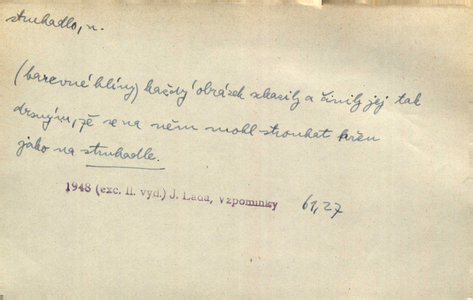 struhadlo, n.
(barevné hlíny) každý obrázek zkazily a činily jej tak
drsným, že se na něm mohl strouhat křen
jako na struhadle.
1948 (exc. II. vyd.) J. Lada, Vzpomínky 61,27